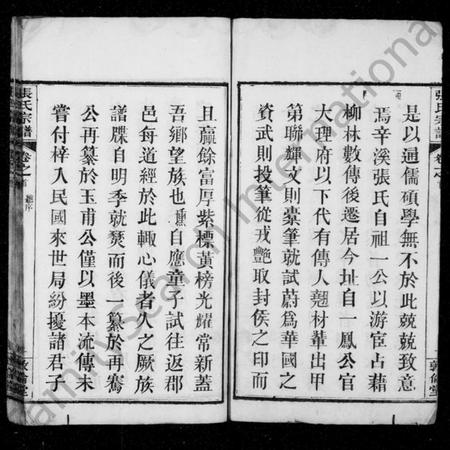 是以通儒碩學無不於此兢兢致意
焉辛溪張氏自祖一公以游宦占藉
柳林數傳後遷居今址自一鳳公官
大理府以下代有傳人翹材輩出甲
第聯輝文則橐筆就試蔚爲華國之
資武則投筆從戎艷取封侯之印而
且贏餘富厚紫標黃榜光耀常新蓋
吾鄉望族也自應童子試往返郡
邑每道經於此輒心儀者久之厥族
譜牒自明季就燹而後一纂於再騫
公再纂於玉甫公僅以墨本流傳未
嘗付梓人民國來世局紛擾諸君子
張氏宗譜
卷之首
敦倫堂
張氏宗譜
卷之首
敦倫堂
Family Search International